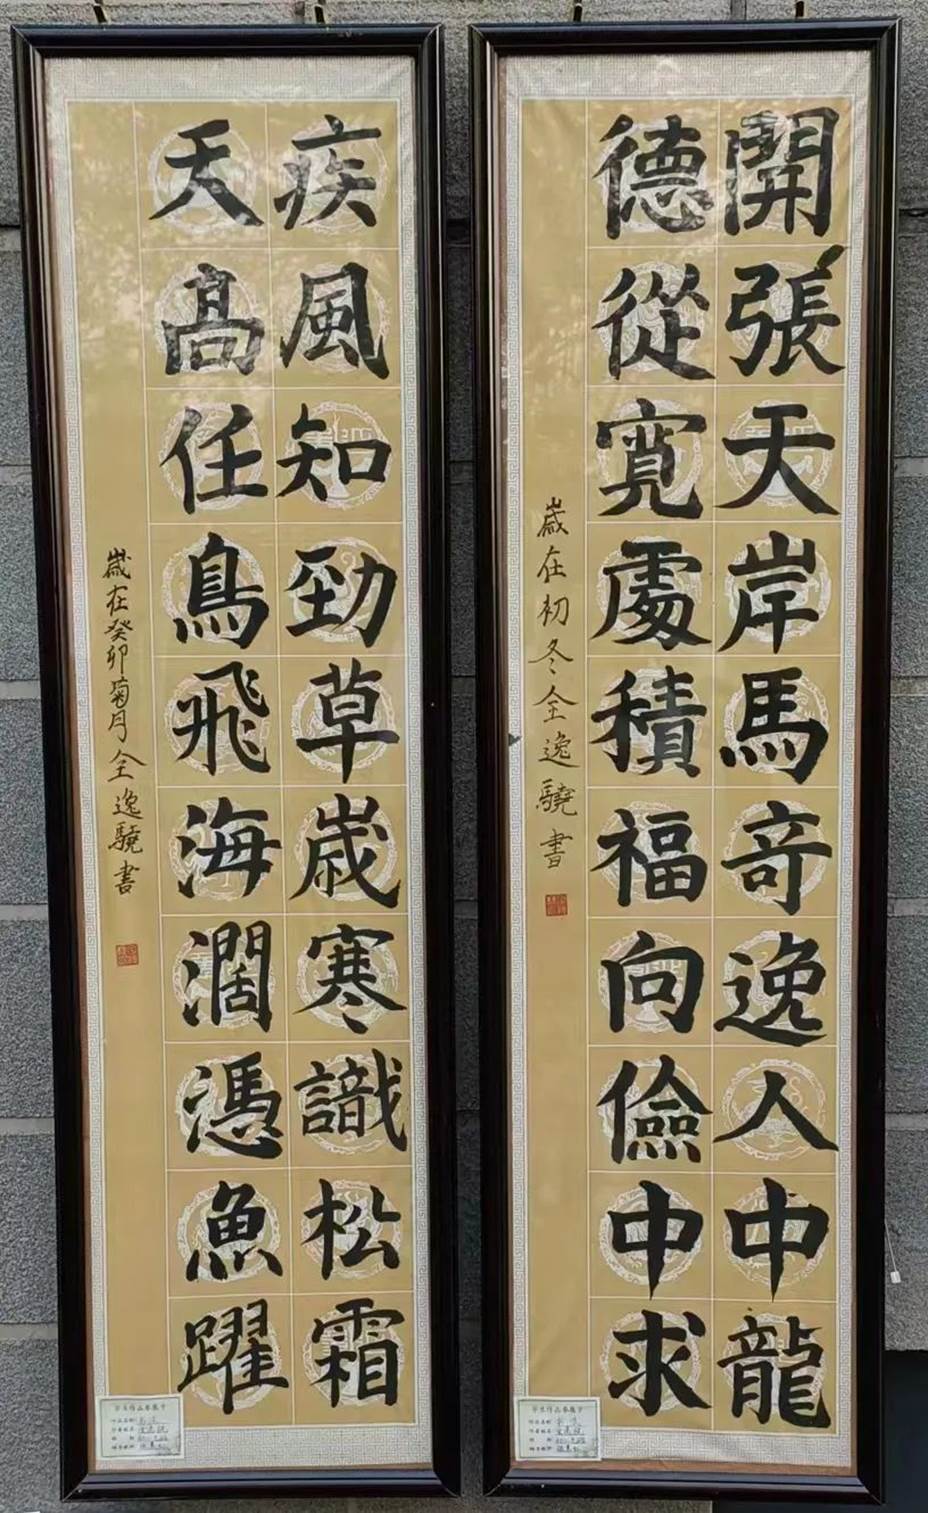 開張天岸馬奇逸人中龍
德從寬處積福向儉中求
嵗在初冬全逸驍書
疾風知勁草嵗寒識松霜
天髙任鳥飛海濶憑魚躍
嵗在癸卯菊月全逸驍書